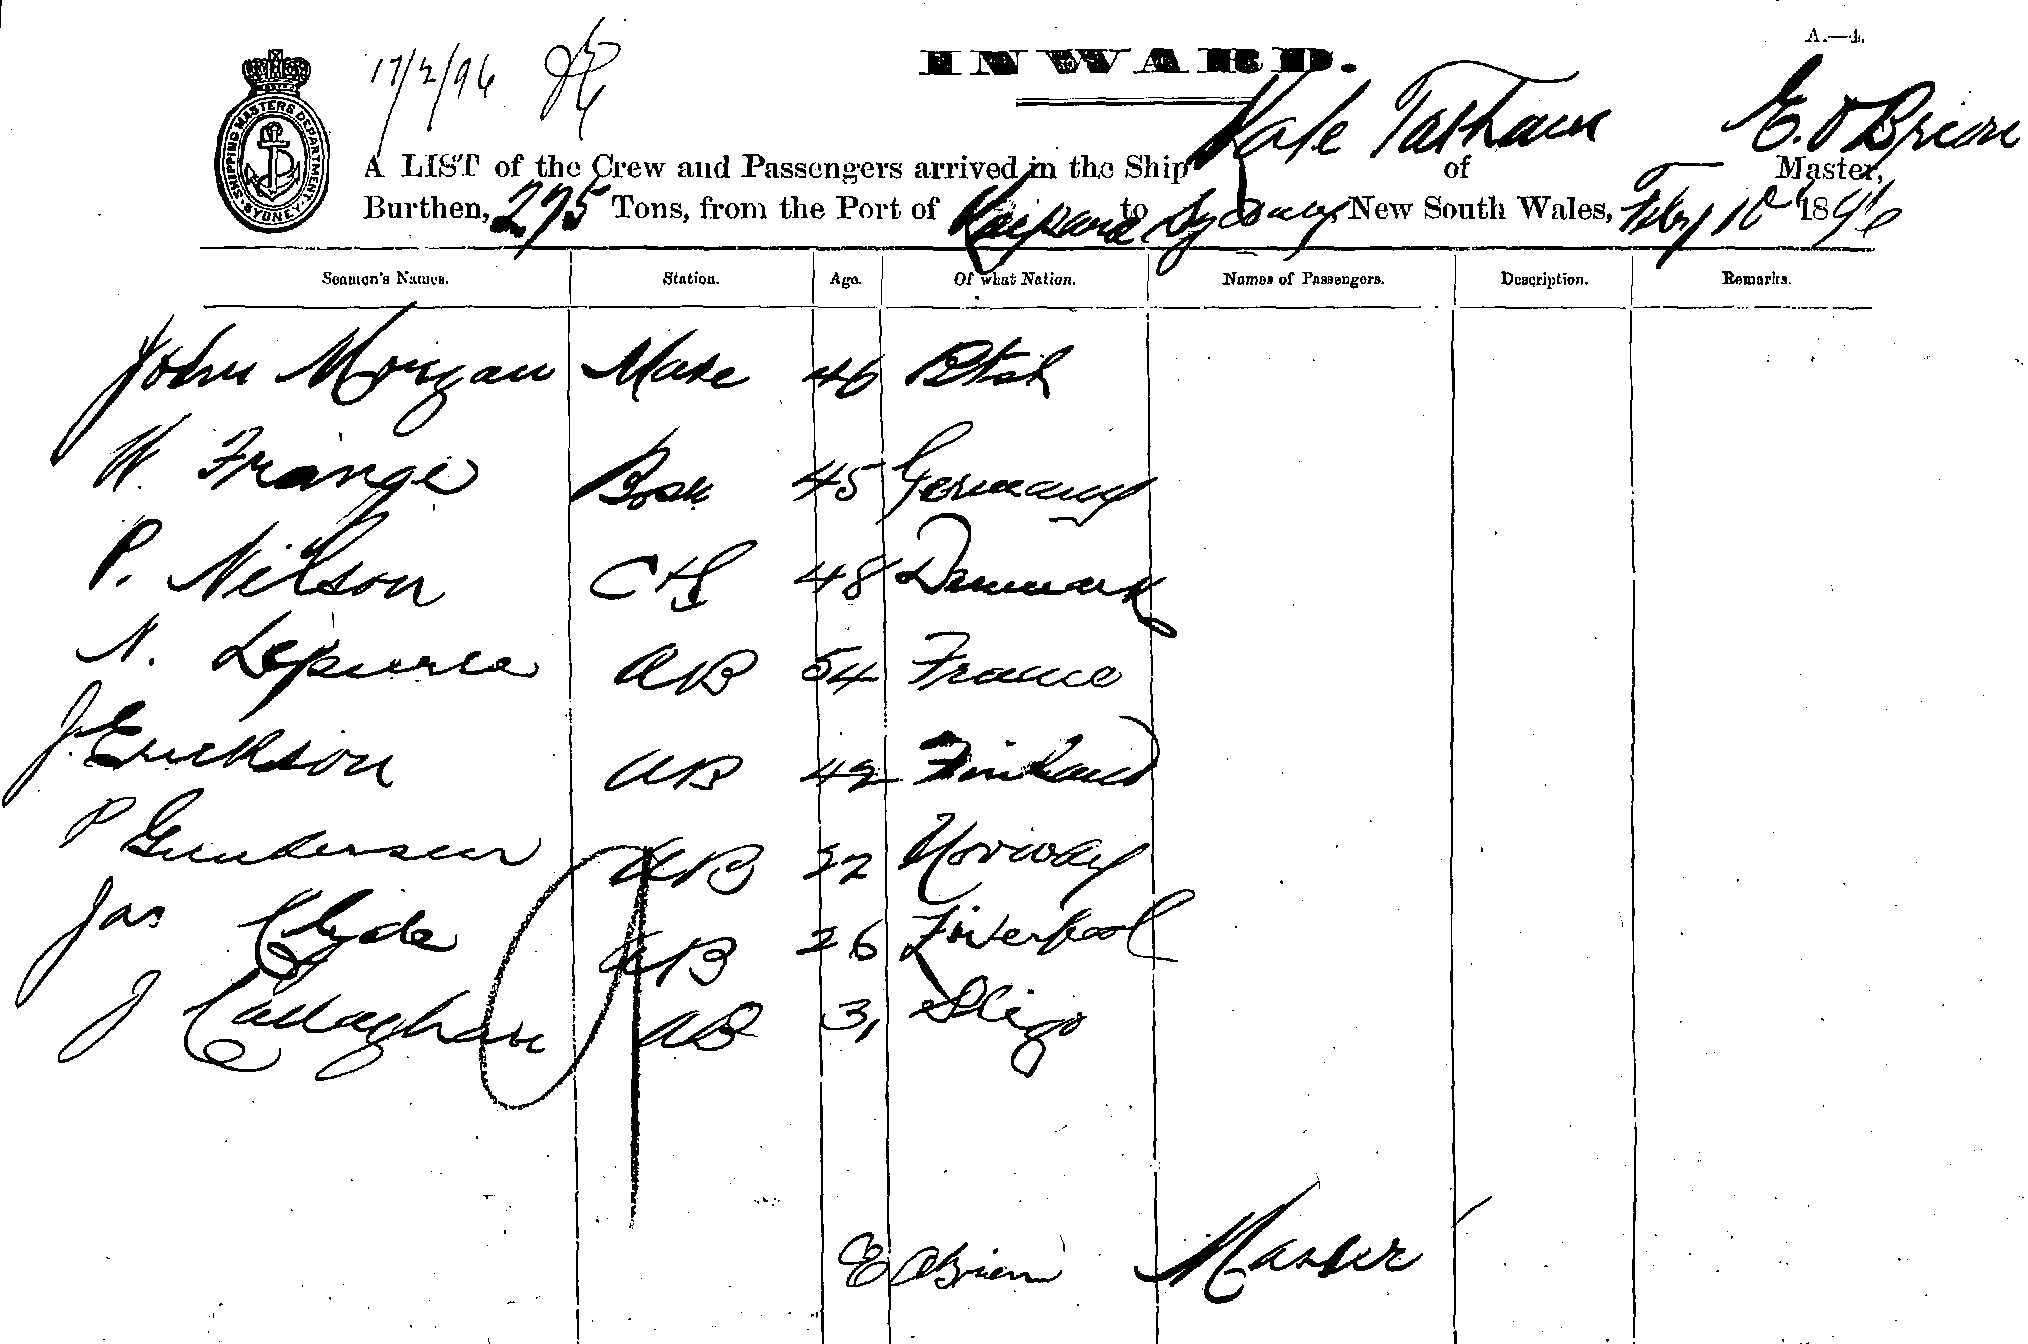 A.—4.
17/2/96
INWARD.
SHIPPING MASTERS DEPARTMENT SYDNEY
A LIST of the Crew and Passengers arrived in the Ship Kate Tatham of E. O'Brien Master,
Burthen, 275 Tons, from the Port of Kaipara to Sydney New South Wales, Feby 10th 1896
Seamen's Names. Station. Age. Of what Nation. Names of Passengers. Description. Remarks.
John Morgan Mate 46 Btsh
W. Frange Bosn 45 Germany
P. Nilson 48 Denmark
N. AB 54 France
J. Erickson AB 42 Finland
P Gundersen AB 22 Norway
Jas Clyde AB 26 Liverpool
J Callaghan AB 31 Sligo
E OBrien Master